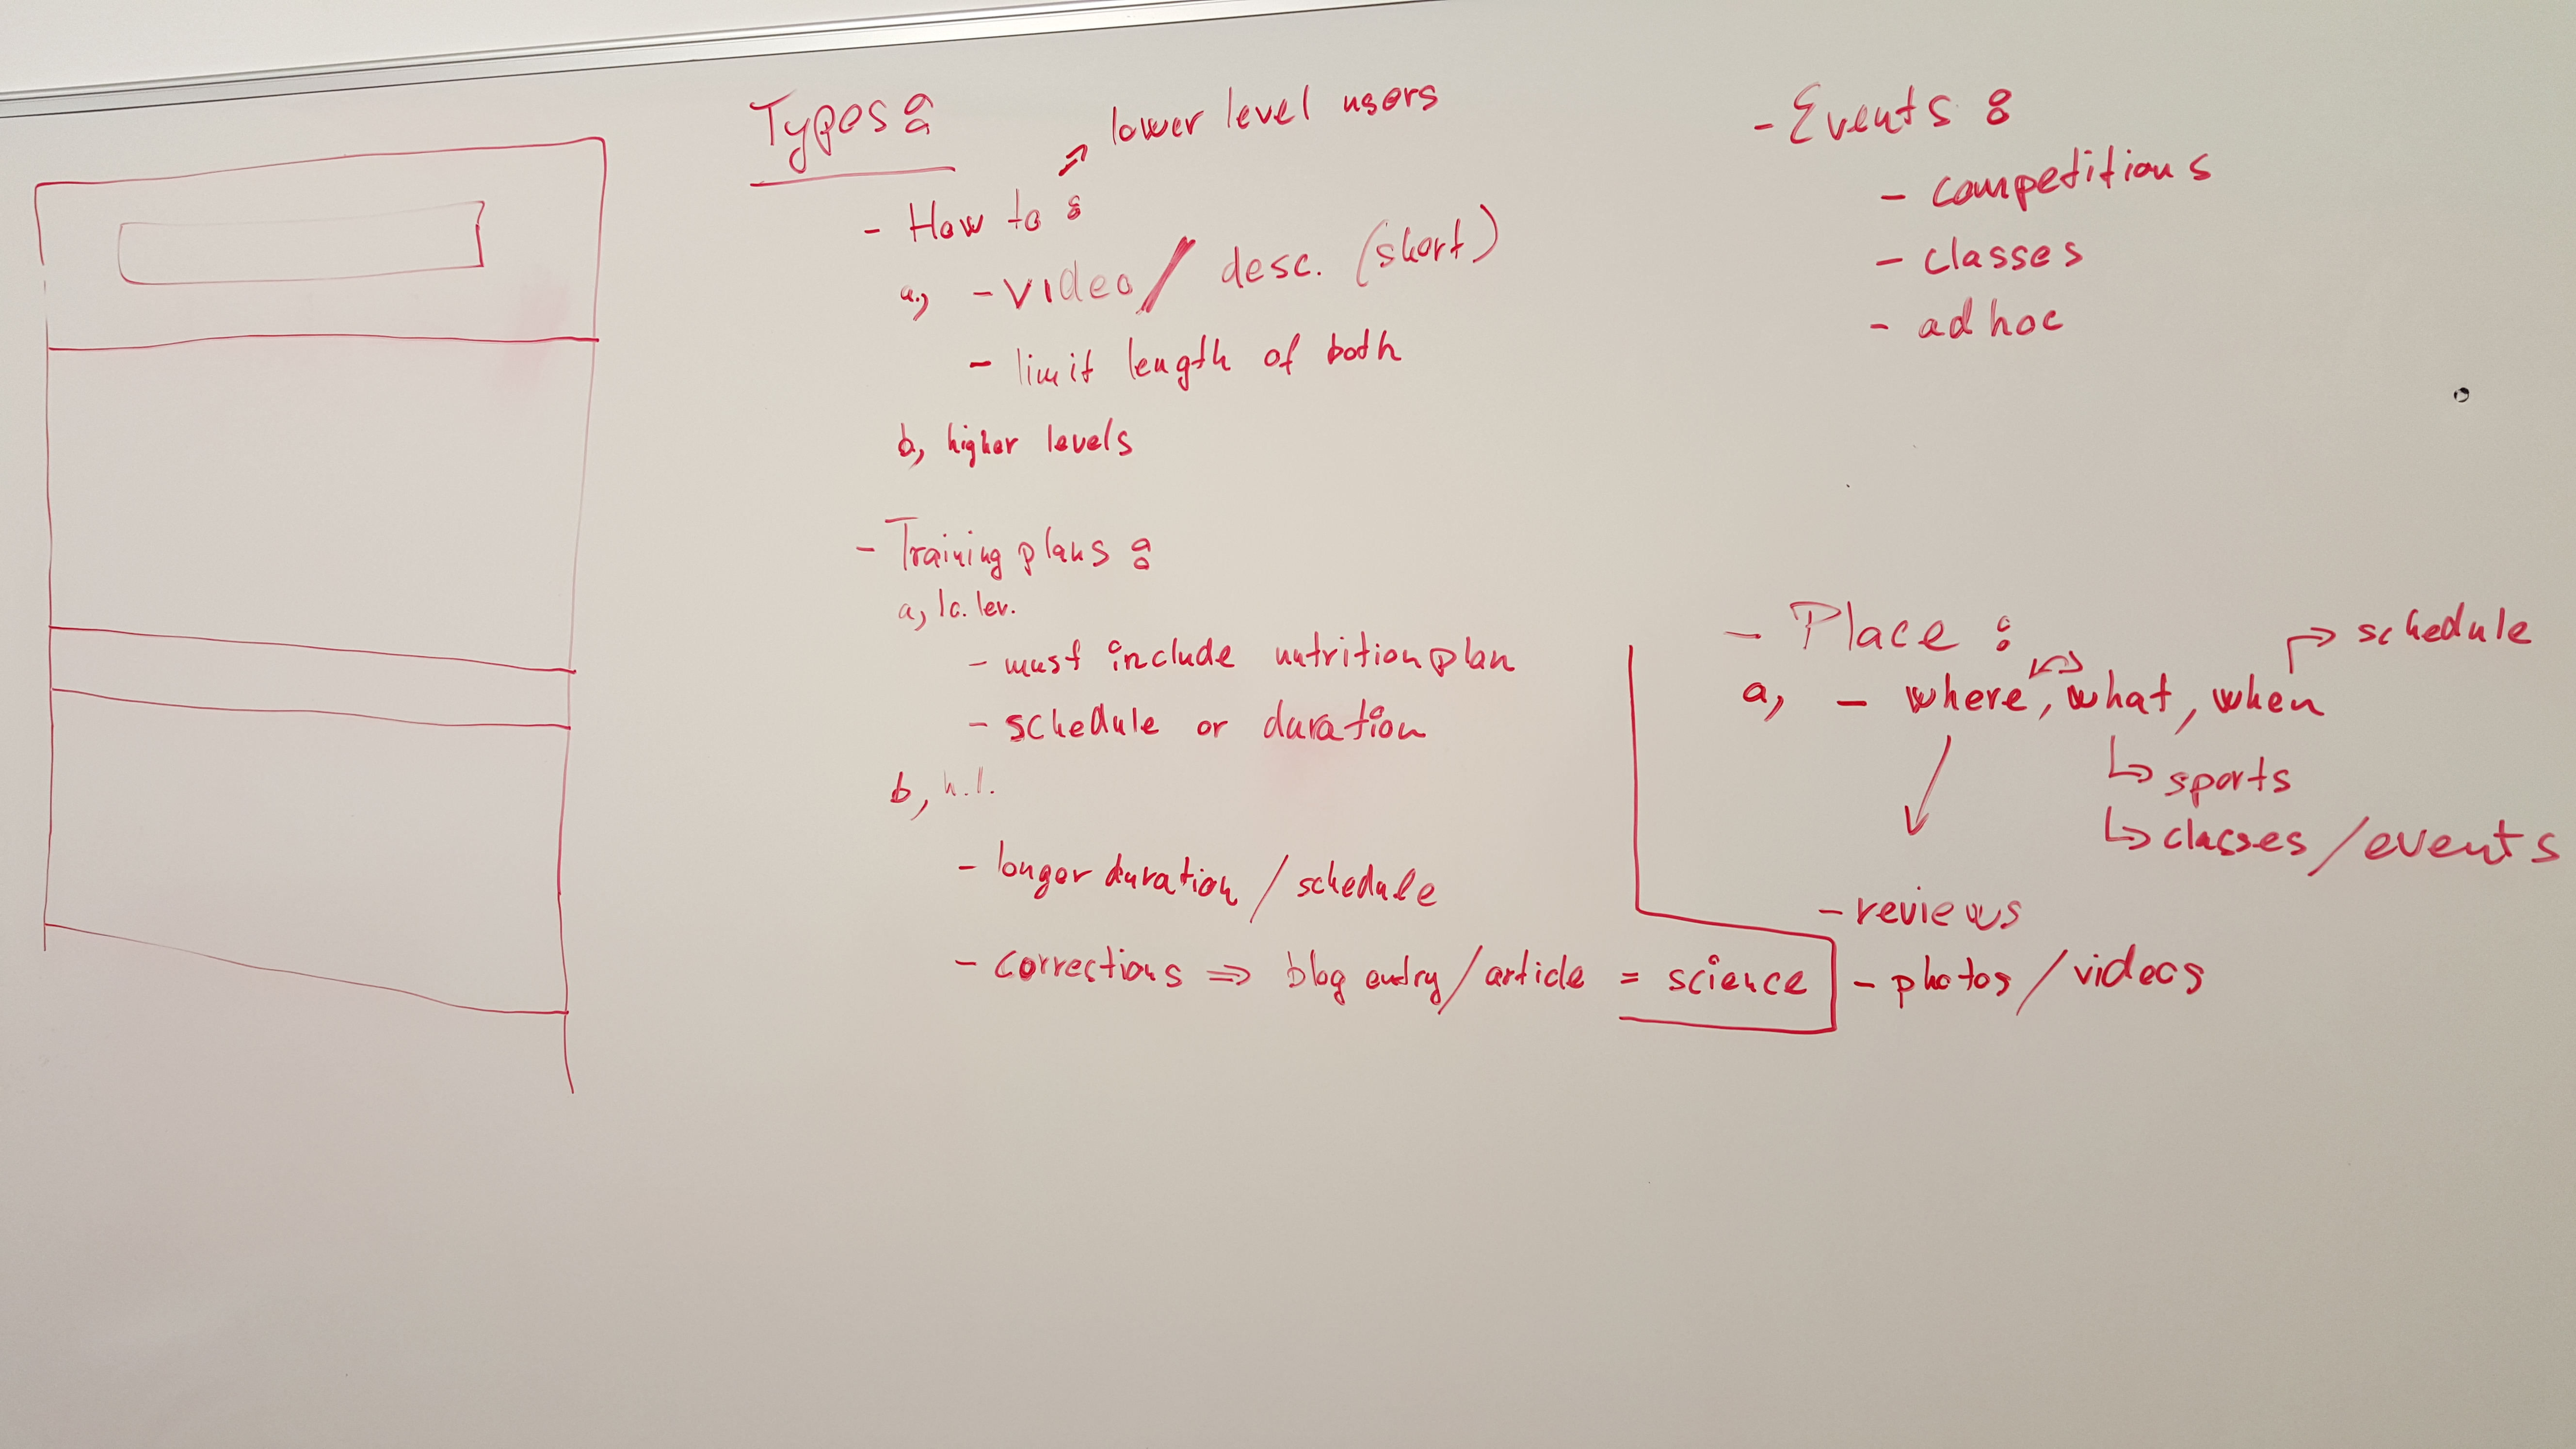 Types:
⇒ lower level users
- How to:
a, - video / desc. (short)
- limit length of both
b, higher levels
- Training plans:
a, lo. lev.
- must include nutrition plan
- schedule or duration
b, h.l.
- longer duration / schedule
- corrections ⇒ blog entry / article = science
- Events:
- competitions
- classes
- ad hoc
- Place:
a, - where, what, when
↱ schedule
↳ sports
↳ classes / events
- reviews
- photos / videos